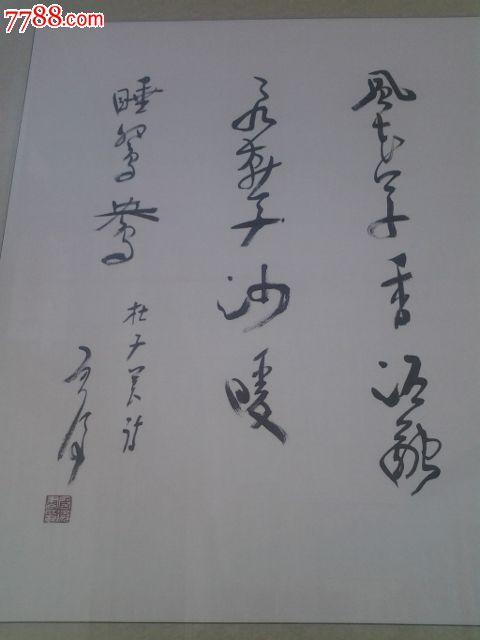 7788.com
風花草香泥融
飛燕子沙暖
睡鴛鴦
杜子美詩